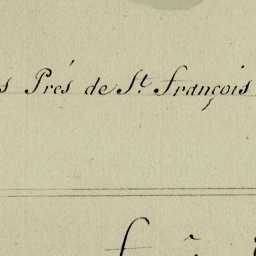 s Prés de St. François